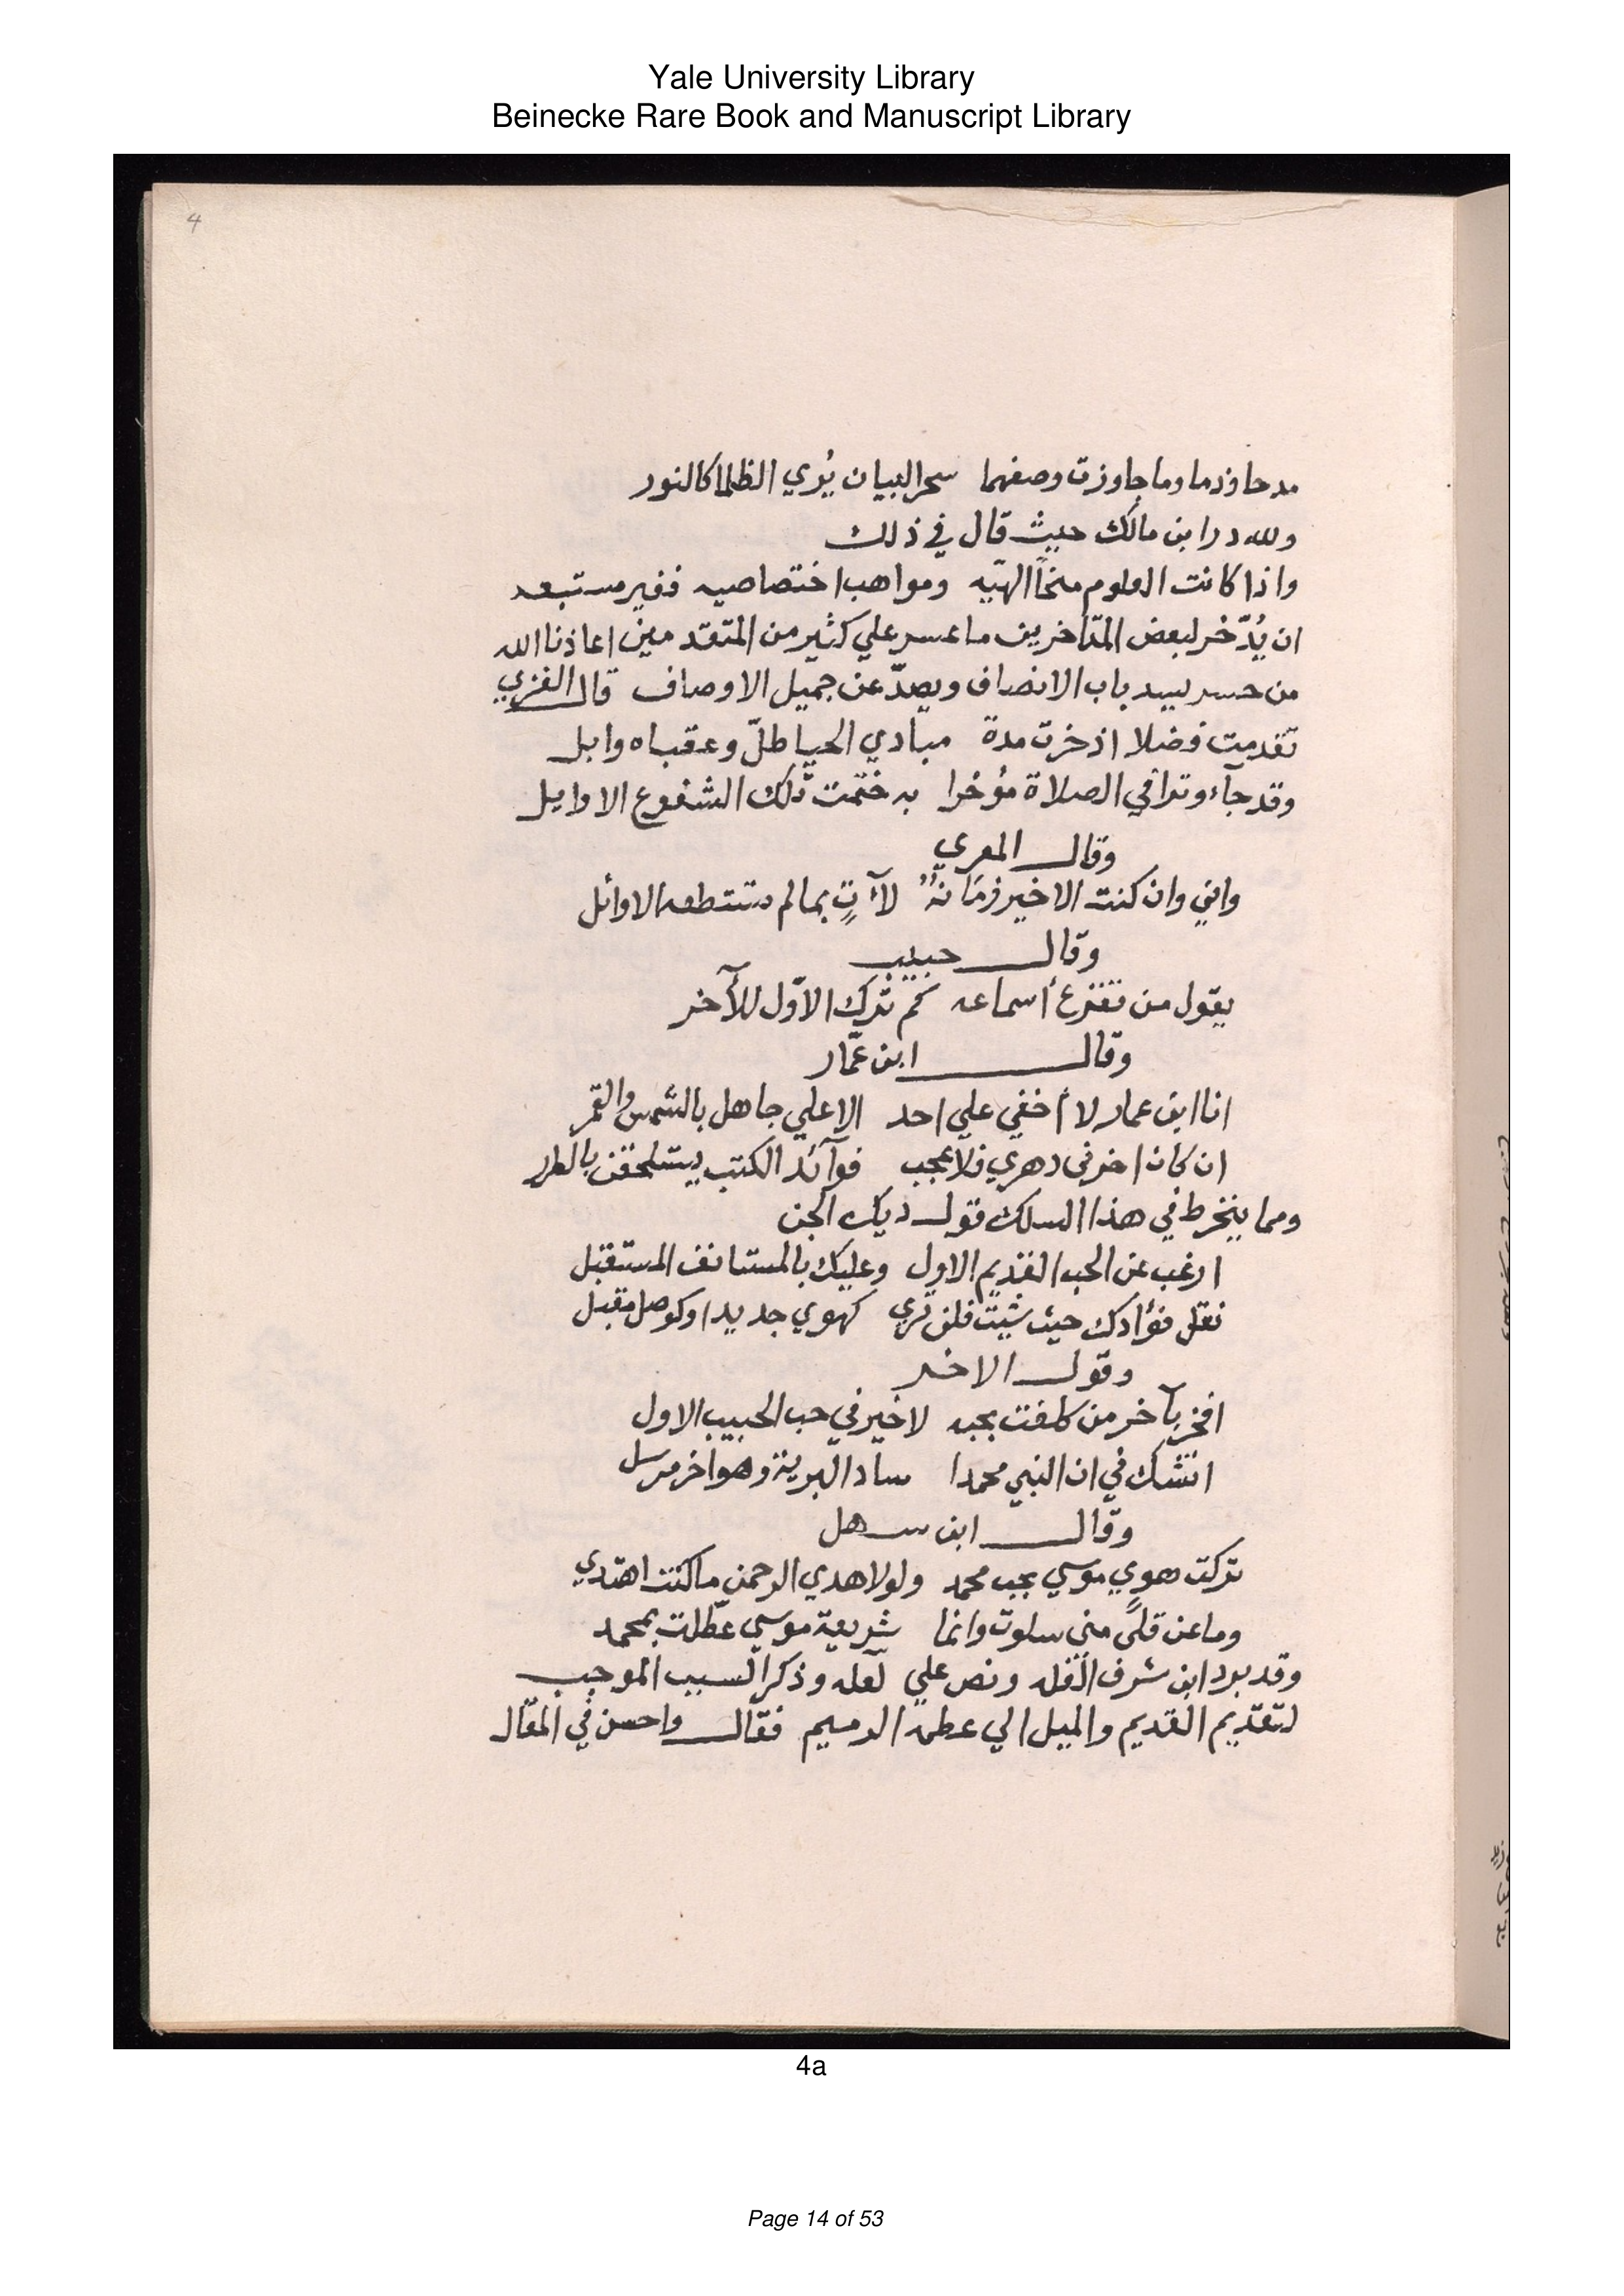 Yale University Library
Beinecke Rare Book and Manuscript Library
4
مدحا وذما وما جاوزت وصفهما سحر البيان يُري الظلما كالنور
ولله در ابن مالك حيث قال في ذلك
واذا كانت العلوم منحاً الهيّه ومواهب اختصاصيه فغير مستبعد
ان يُدّخر لبعض المتاخرين ما عسر علي كثير من المتقدمين اعاذنا الله
من حسد يسد باب الانصاف ويصدّ عن جميل الاوصاف قال الغزي
تقدمت فضلا اذ خرت مدة مبادي الحيا طلّ وعقباه وابل
وقد جآء وترا في الصلاة مؤخرا به ختمت تلك الشفوع الاوايل
وقال المعري
واني وان كنت الاخير زمَانهُ لآءتٍ بمالم تستطعه الاوائل
وقال حبيب
يقول من تقرع أسماعه كم ترك الاوّل للآخر
وقال ابن عمّار
انا ابن عمار لا أخفي علي احد الا علي جاهل بالشمس والقمر
ان كان اخرني دهري فلا عجب فوآئد الكتب يستلحقن بالطرر
ومما ينخرط في هذا السلك قول ديك الجن
ارغب عن الحب القديم الاول وعليك بالمستانف المستقبل
نقل فؤادك حيث شيت فلن تري كهوي جديد اوكوصل مقبل
وقول الاخر
افخر بآخر من كلفت بحبه لاخير في حب الحبيب الاول
اتشك في ان النبي محمدا ساد البرية وهو اخر مرسل
وقال ابن سهل
تركت هوي موسي بحب محمد ولولا هدي الرحمن ما كنت اهتدي
وما عن قلًي مني سلوت وانما شريعة موسي عطّلت بمحمد
وقد برد ابن شرف الغله ونص علي لعله وذكر السبب الموجب
لتقديم القديم والميل الي عظمه الرميم فقال واحسن في المقال
4a
Page 14 of 53